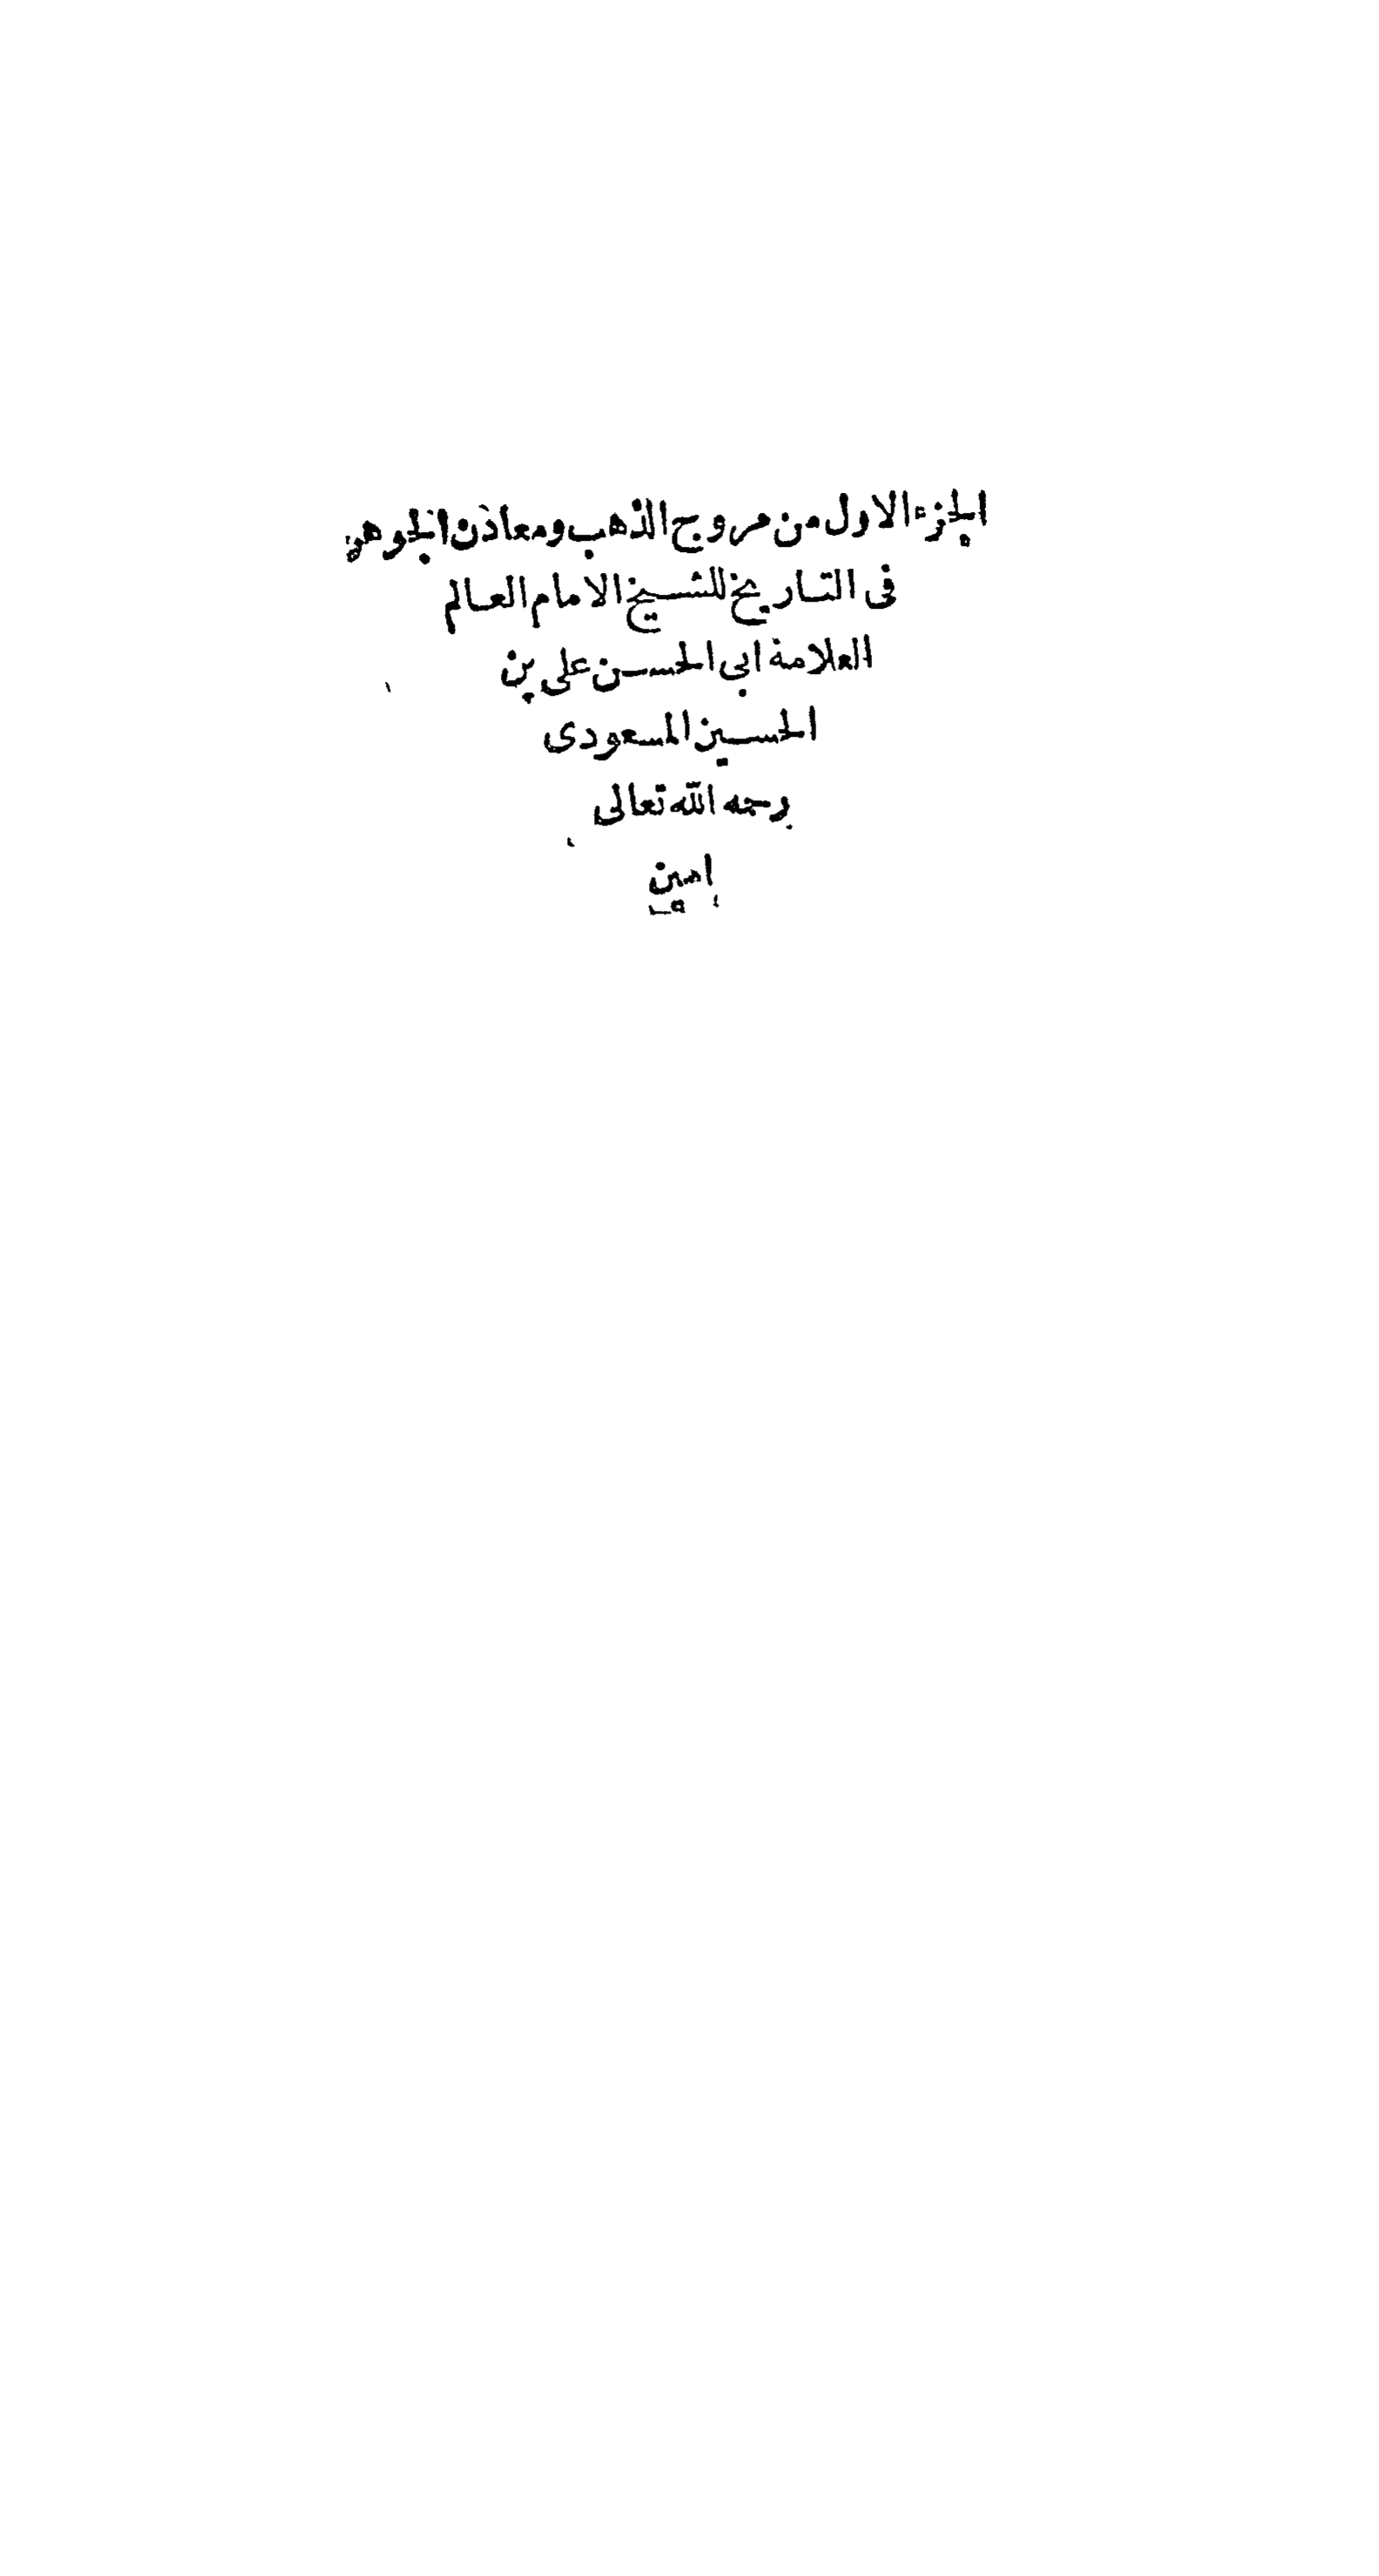 الجزء الاول من مروج الذهب ومعادن الجوهر
فى التاريخ للشيخ الامام العالم
العلامة ابى الحسن على بن
الحسين المسعودى
رحمه الله تعالى
امين